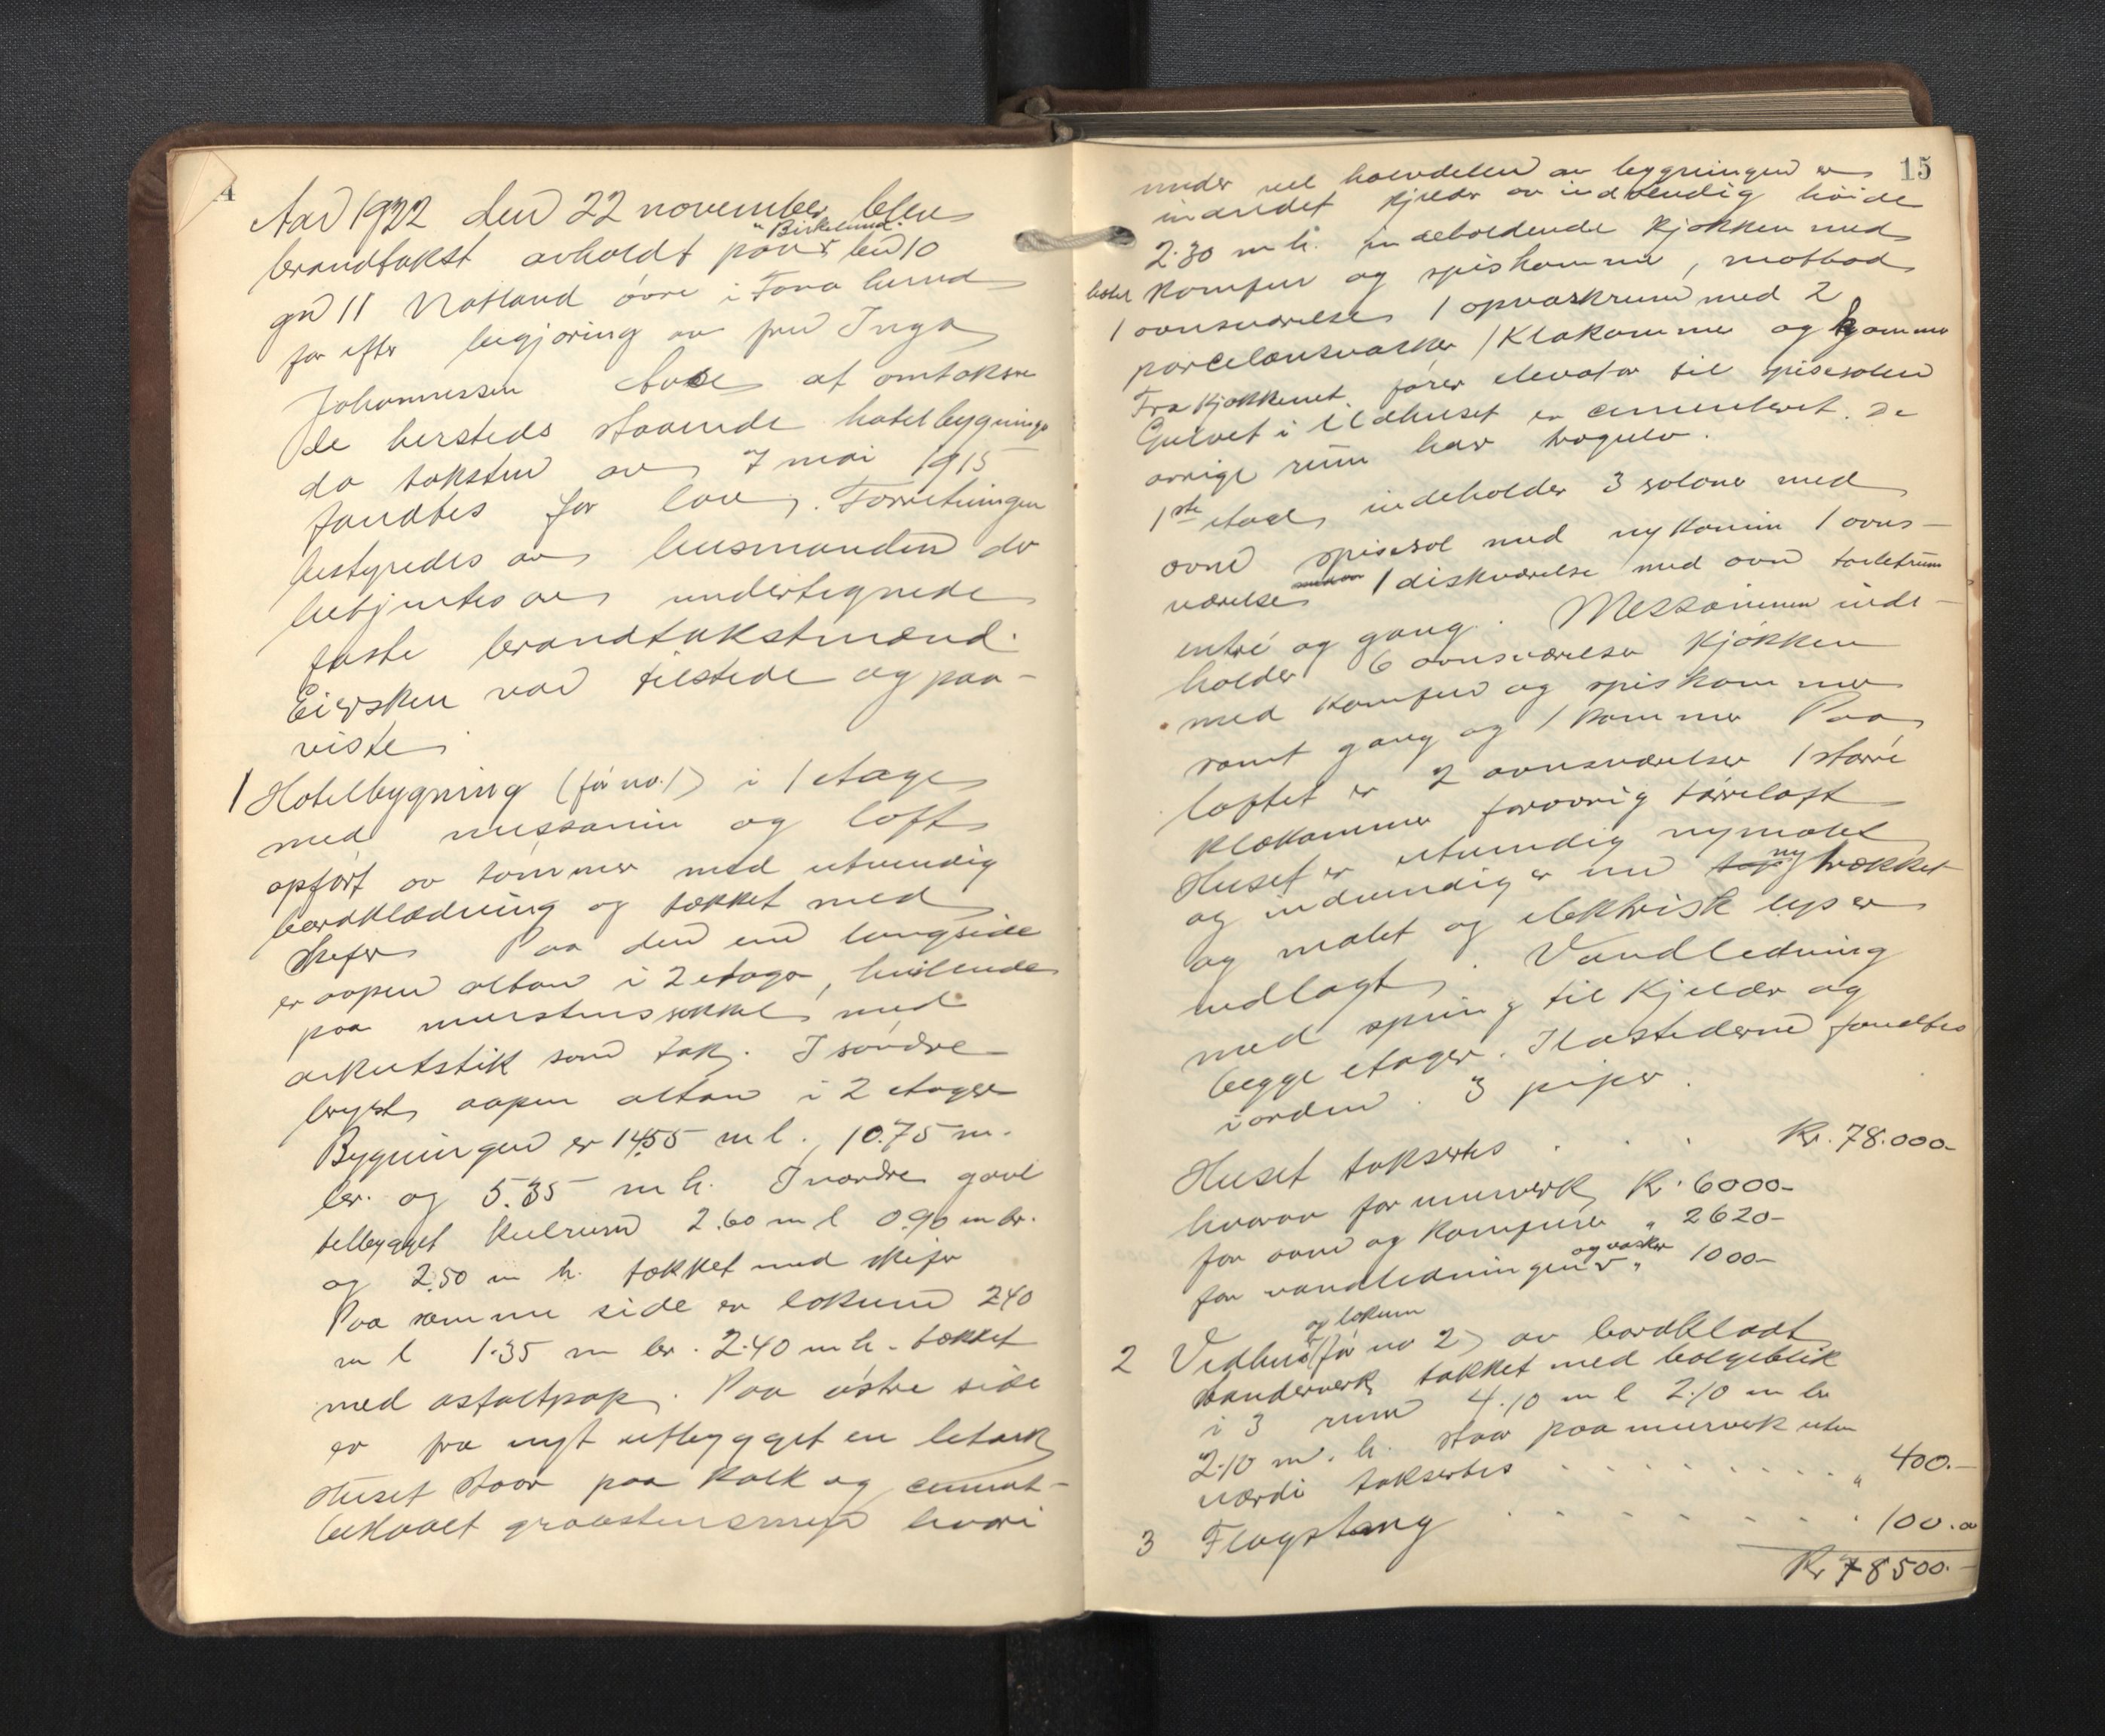 4
Aar 1922 den 22 november blev
"Birkelund"
brandtakst avholdt paa br no 10
gn 11 Natland øvre i Fana herred
for efter begjæring av fru Inga
Johannessen at omtaksere
de hersteds staaende hotelbygninger
da taksten av 7 mai 1915
fandtes for lav. Forretningen
bestyredes av lensmanden der
betjentes av undertegnede
faste brandtakstmænd.
Eiersken var tilstede og paa-
viste
1 Hotelbygning (før no. 1) i 1 etage
med messanin og loft
opført av tømmer med utvendig
bordklædning og tækket med
skifer Paa den ene langside
er aapen altan i 2 etager, hvilende
paa murstenssokkel med
arkutstik som tak. I søndre
bryst aapen altan i 2 etager
Bygningen er 14.55 m l. 10.75 m.
br. og 5.35 m h. I nordre gavl
tilbygget kulrum 2.60 m l 0.90 m br.
og 2.50 m h. tækket med skifer
Paa samme side er lokum 2.40
m l 1.35 m br. 2.40 m h. tækket
med asfaltpap. Paa østre side
er fra nyt utbygget en letark
Huset staar paa kalk og cement-
beslaaet graastensmur hvori
15
under hele hovddelen av bygningen er
indredet kjelder av indvendig høide
2.30 m h. indeholdende kjøkken med
komfur og spiskammer, matbod
1 ovnsværelse 1 opvaskrum med 2
porcelænsvasker 1 Klækammer og kammer
Fra kjøkkenet fører elevator til spisesalen
Gulvet i ildhuset er cementeret. De
øvrige rum har trægulv.
1ste etage indeholder 3 saloner med
ovne spisesal med ny kamin 1 ovns-
værelse 1 diskværelse med ovn toiletrum
entré og gang. Messaninen inde-
holder 6 ovnsværelser kjøkken
med komfur og spiskammer
samt gang og 1 kammer Paa
loftet er 2 ovnsværelser 1 større
klækammer forøvrig tørreloft
Huset er utvendig nymalet
ny
og indvendig er nu trækket
og malet og elektrisk lys er
indlagt. Vandledning
med spring til kjelder og
begge etager. Ildstederne fandtes
i orden. 3 piper.
Huset takseres . . . Kr. 78.000-
hvorav for murverk Kr. 6000-
for ovne og komfurer " 2620-
og vasker
for vandledningen " 1000-
og lokum
2 Vedhus (før no 2) av bordklædt
binderverk tækket med bølgeblik
i 3 rum 4.10 m l 2.10 m br
2.10 m. h. staar paa murverk uten
værdi takseres . . . . . . . . " 400.-
3 Flagstang . . . . . . . 100.00
Kr 78500.-